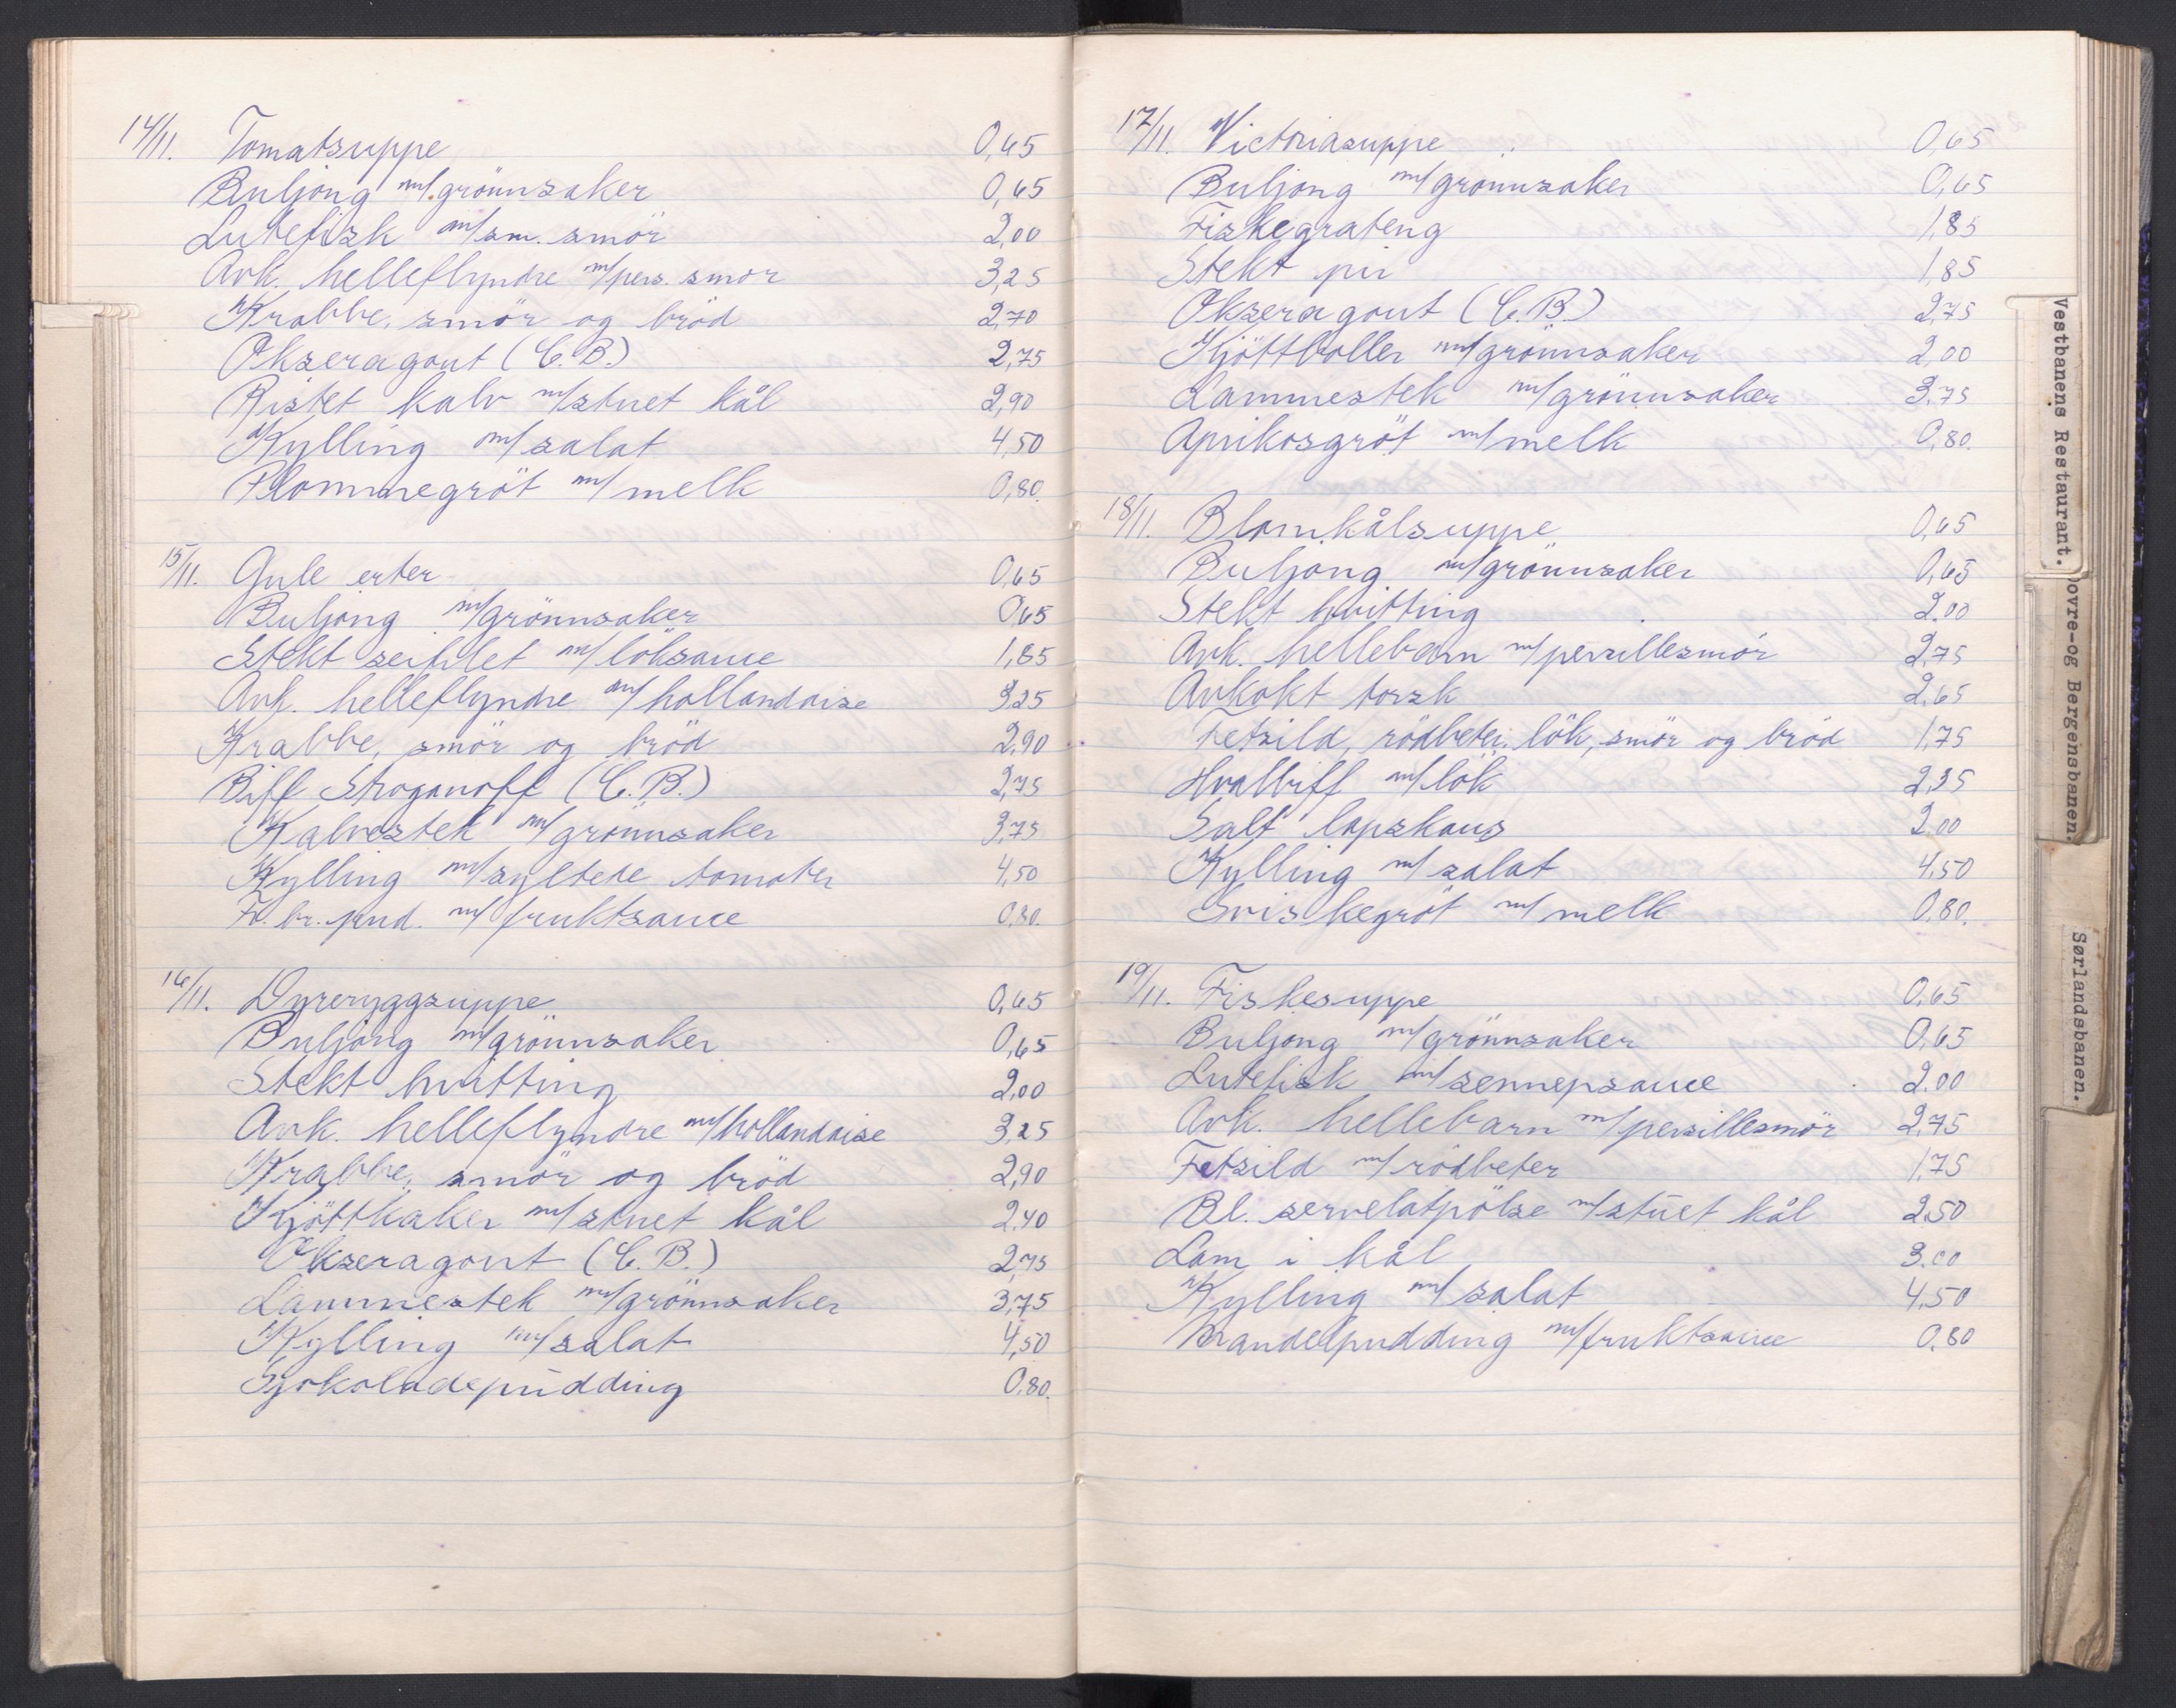 14/11. Tomatsuppe 0,65
Buljong m/grönnsaker 0,65
Lutefisk m/sm. smör 2,00
Avk. helleflyndre m/pers. smör 3,25
Krabbe, smör og bröd 2,70
Okseragout (C.B.) 2,75
Ristet kalv m/stuet kål 2,90
Kylling m/salat 4,50
Plommegröt m/melk 0,80.
15/11. Gule erter 0,65
Buljong m/grönnsaker 0,65
Stekt seifilet m/löksauce 1,85
Avk. helleflyndre m/hollandaise 3,25
Krabbe, smör og bröd 2,90
Biff Stroganoff (C.B.) 2,75
Kalvestek m/grönnsaker 3,75
Kylling m/syltede tomater 4,50
Fr. br. pud. m/fruktsauce 0,80.
16/11. Dyreryggsuppe 0,65
Buljong m/grönnsaker 0,65
Stekt hvitting 2,00
Avk. helleflyndre m/hollandaise 3,25
Krabbe, smör og bröd 2,90
Kjöttkaker m/stuet kål 2,40
Okseragout (C.B.) 2,75
Lammestek m/grönnsaker 3,75
Kylling m/salat 4,50
Sjokoladepudding 0,80.
17/11. Victoriasuppe 0,65
Buljong m/grönnsaker 0,65
Fiskegrateng 1,85
Stekt pir 1,85
Okseragout (C.B.) 2,75
Kjöttboller m/grönnsaker 2,00
Lammestek m/grönnsaker 3,75
Aprikosgröt m/melk 0,80.
18/11. Blomkålsuppe 0,65
Buljong m/grönnsaker 0,65
Stekt hvitting 2.00
Avk. hellebarn m/persillesmör 2,75
Avkokt torsk 2,65
Fetsild, rödbeter, lök, smör og bröd 1,75
Hvalbiff m/lök 2,35
Salt lapskaus 2.00
Kylling m/salat 4,50
Sviskegröt m/melk 0.80.
19/11. Fiskesuppe 0,65
Buljong m/grönnsaker 0,65
Lutefisk m/sennepsauce 2.00
Avk. hellebarn m/persillesmör 2,75
Fetsild m/rödbeter 1,75
Bl. servelatpölse m/stuet kål 2.50
Lam i kål 3.00
Kylling m/salat 4,50
Mandelpudding m/fruktsauce 0,80
Vestbanens Restaurant.
Dovre-og Bergensbanen.
Sørlandsbanen.